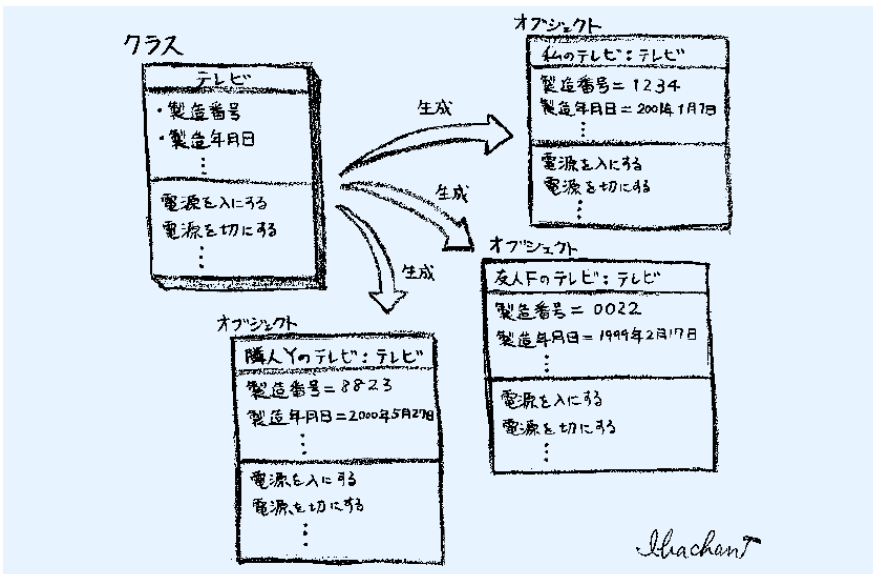 クラス
テレビ
・製造番号
・製造年月日
⋮
電源を入にする
電源を切にする
⋮
生成
生成
生成
オブジェクト
私のテレビ：テレビ
製造番号＝1234
製造年月日＝2001年1月7日
⋮
電源を入にする
電源を切にする
⋮
オブジェクト
友人Fのテレビ：テレビ
製造番号＝0022
製造年月日＝1999年2月17日
⋮
電源を入にする
電源を切にする
⋮
オブジェクト
隣人Yのテレビ：テレビ
製造番号＝8823
製造年月日＝2000年5月27日
⋮
電源を入にする
電源を切にする
⋮